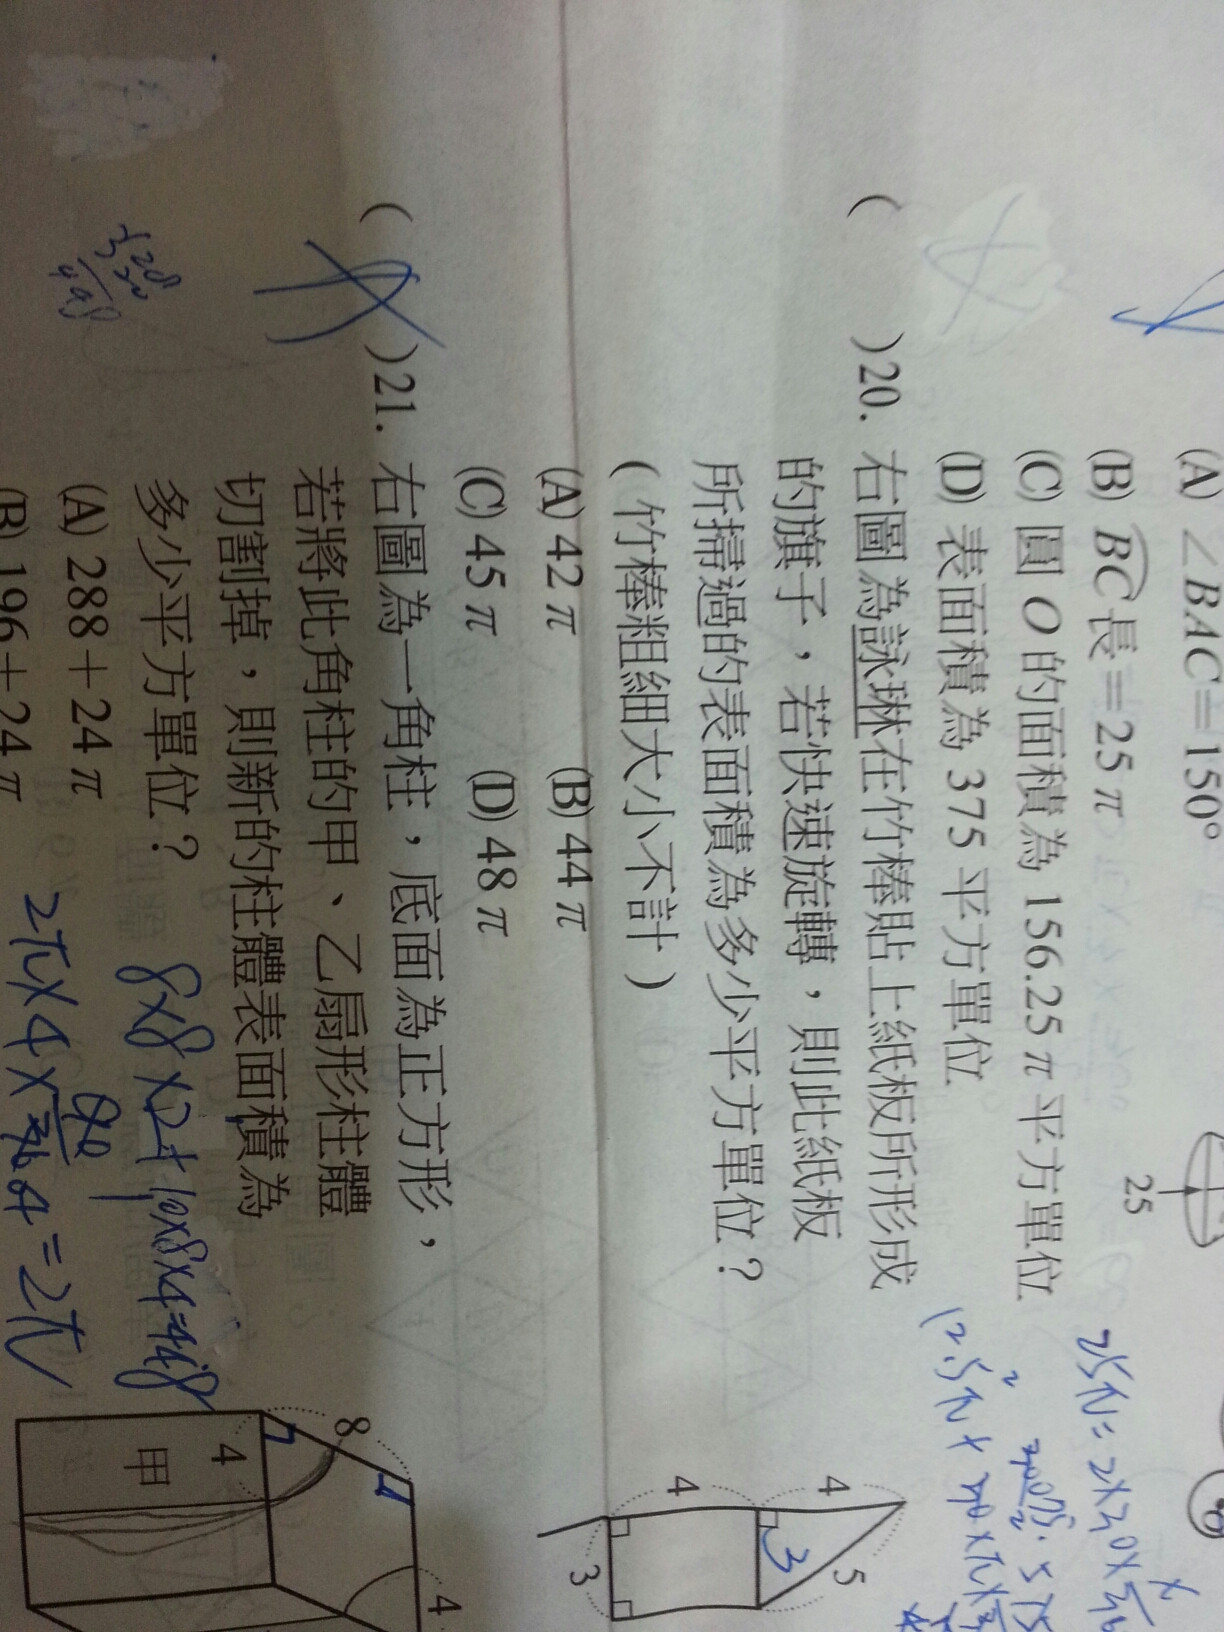 (A) ∠BAC=150°
(B) BC長=25π
(C) 圓 O 的面積為 156.25π平方單位
(D) 表面積為 375 平方單位
25
( )20. 右圖為詠琳在竹棒貼上紙板所形成
的旗子，若快速旋轉，則此紙板
所掃過的表面積為多少平方單位？
(竹棒粗細大小不計)
(A) 42π (B) 44π
(C) 45π (D) 48π
4
4
5
3
3
( )21. 右圖為一角柱，底面為正方形，
若將此角柱的甲、乙扇形柱體
切割掉，則新的柱體表面積為
多少平方單位？
(A) 288+24π
(B) 196+24π
8
4
4
甲
8×8×2+10×8×4=448